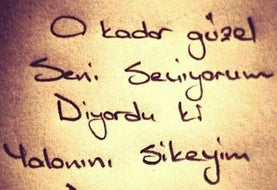 O kadar güzel
Seni Seviyorum
Diyordu ki
Yalanını Sikeyim